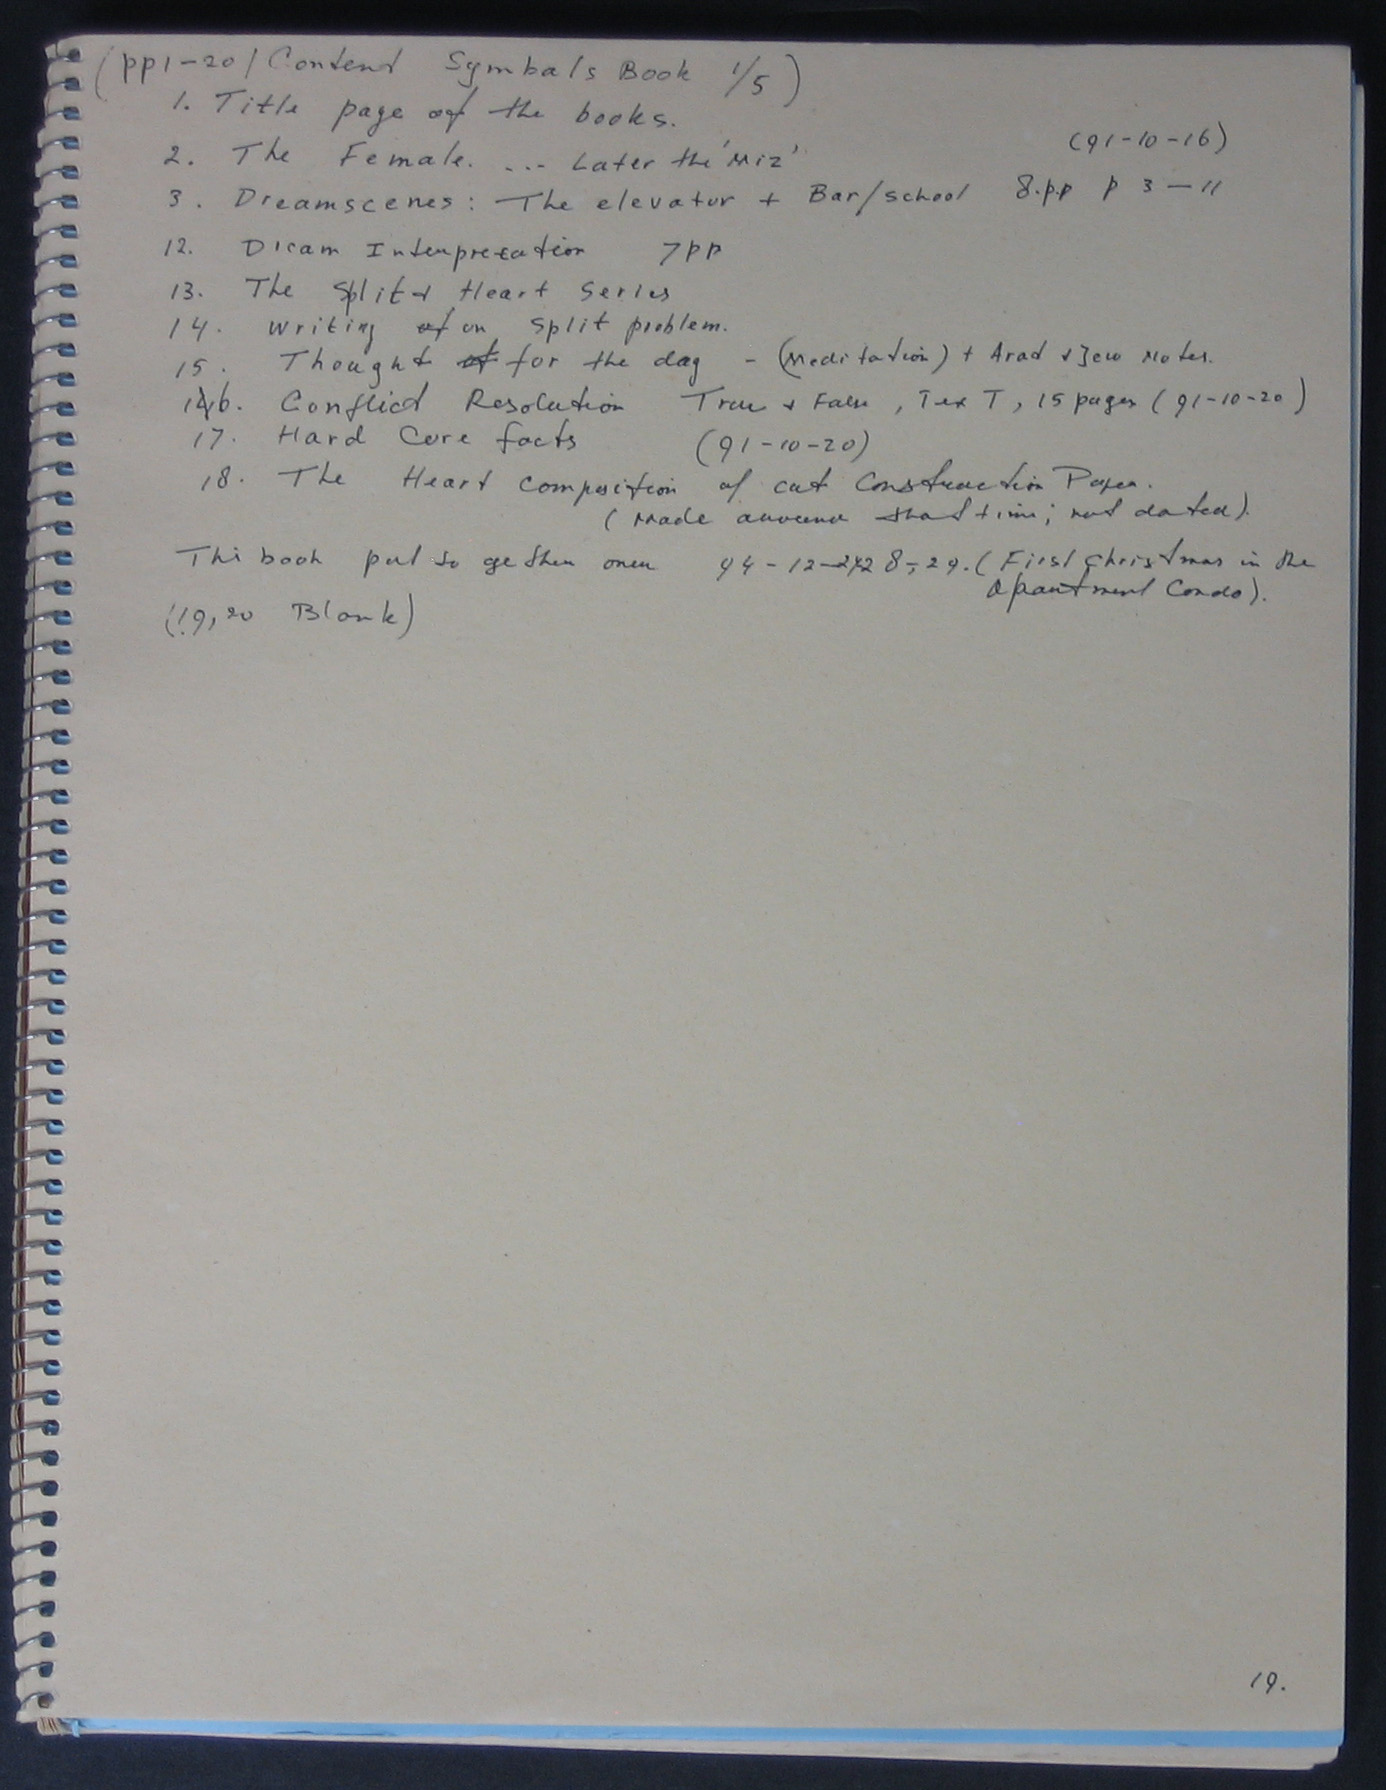 (pp1-20/Content Symbals Book 1/5)
1. Title page of the books.
2. The Female. ... Later the 'Miz' (91-10-16)
3. Dreamscenes: The elevator + Bar/school 8.p.p p 3-11
12. Dream Interpretation 7pp
13. The Split Heart Series
14. Writing on split problem.
15. Thought for the day - (Meditation) + Arad + Jew Notes.
16. Conflict Resolution True + False, Text, 15 pages (91-10-20)
17. Hard Core facts (91-10-20)
18. The Heart composition of cut Construction Paper.
(Made around that time; not dated).
This book put to gether 94-12- 28,29. (First Christmas in the
Apartment Condo).
(19,20 Blank)
19.